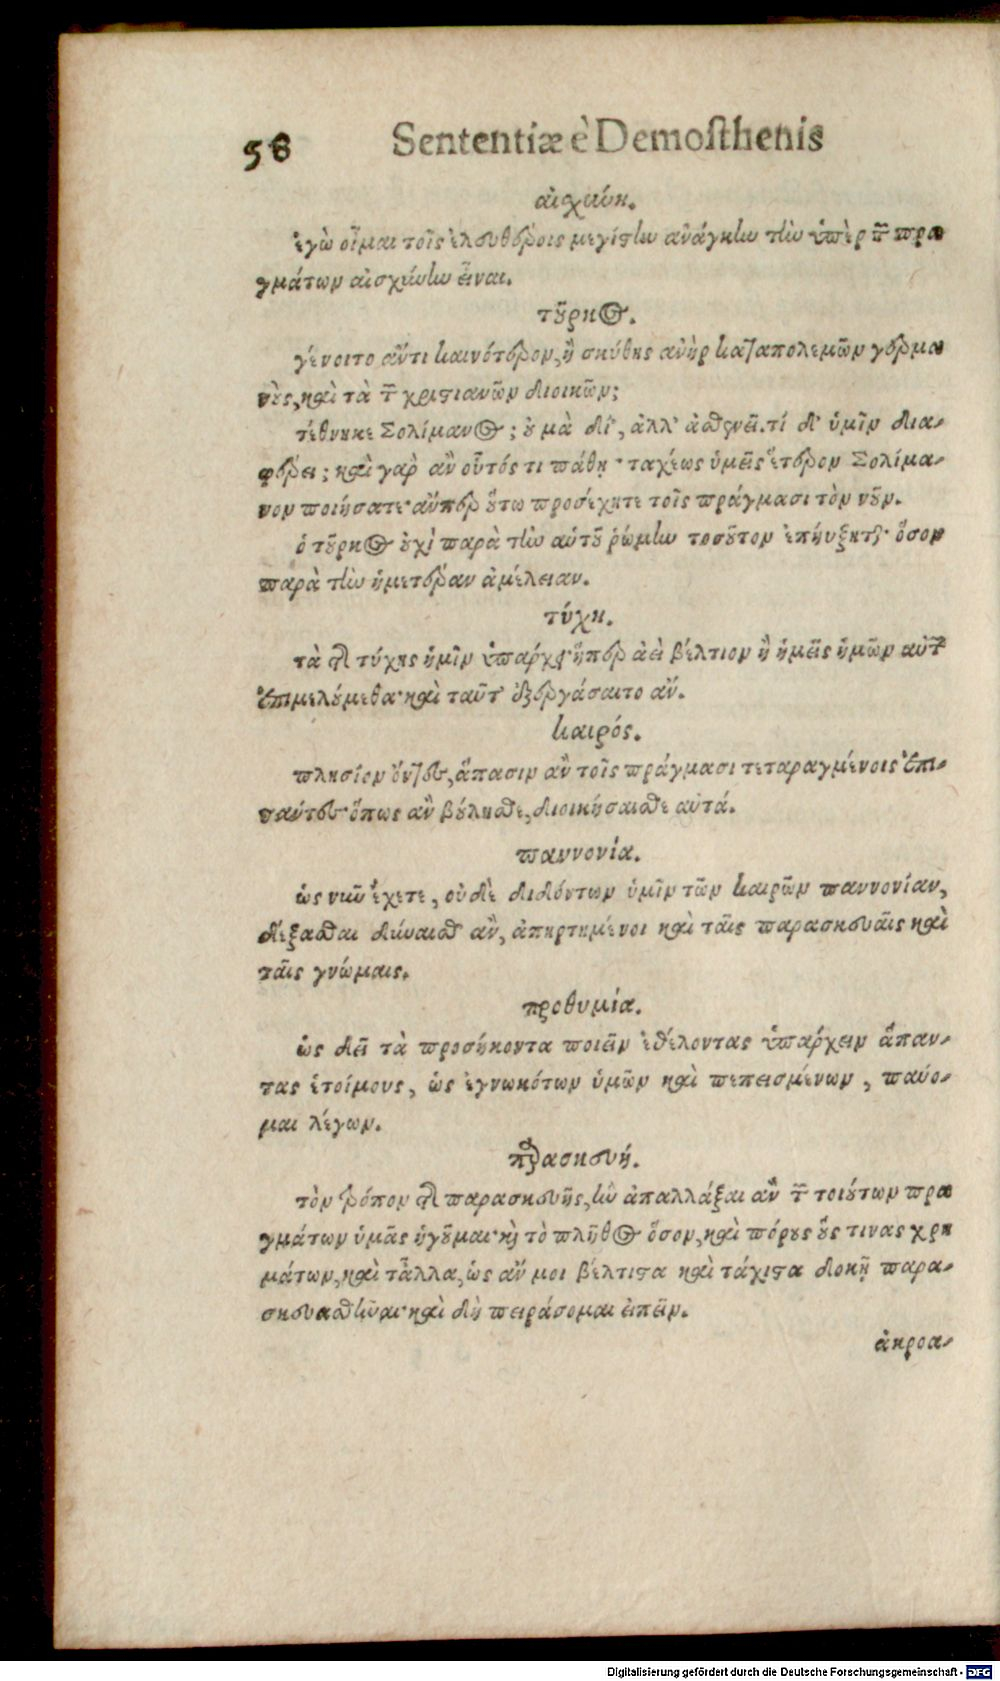 58 Sententiæ è Demosthenis
αἰσχύνη.
ἐγὼ οἶμαι τοῖς ἐλευθέροις μεγίστην ἀνάγκην τὴν ὑπὲρ τῶν πρα
γμάτων αἰσχύνην εἶναι.
τοῦρκος.
γένοιτο ἄν τι καινότερον, ἢ σκύθης ἀνὴρ καταπολεμῶν γερμα
νοὺς, καὶ τὰ τῶν χριστιανῶν διοικῶν;
τέθνηκε Σολίμανος; οὐ μὰ δί', ἀλλ' ἀσθενεῖ. τί δ' ὑμῖν δια-
φέρει; καὶ γὰρ ἂν οὗτός τι πάθῃ· ταχέως ὑμεῖς ἕτερον Σολίμα-
νον ποιήσατε· ἄνπερ οὕτω προσέχητε τοῖς πράγμασι τὸν νοῦν.
ὁ τοῦρκος οὐχὶ παρὰ τὴν αὑτοῦ ῥώμην τοσοῦτον ἐπηύξηται· ὅσον
παρὰ τὴν ἡμετέραν ἀμέλειαν.
τύχη.
τὰ τῆς τύχης ἡμῖν ὑπάρχει· ἥπερ ἀεὶ βέλτιον ἢ ἡμεῖς ἡμῶν αὐτῶν
ἐπιμελούμεθα· καὶ ταῦτ' ἐξεργάσαιτο ἄν.
καιρός.
πλησίον ὄντες, ἅπασιν ἂν τοῖς πράγμασι τεταραγμένοις ἐπι-
στάντες· ὅπως ἂν βούλησθε, διοικήσαισθε αὐτά.
παννονία.
ὡς νῦν ἔχετε, οὐδὲ διδόντων ὑμῖν τῶν καιρῶν παννονίαν,
δέξασθαι δύναισθ' ἂν, ἀπηρτημένοι καὶ ταῖς παρασκευαῖς καὶ
ταῖς γνώμαις.
προθυμία.
ὡς δεῖ τὰ προσήκοντα ποιεῖν ἐθέλοντας ὑπάρχειν ἅπαν-
τας ἑτοίμους, ὡς ἐγνωκότων ὑμῶν καὶ πεπεισμένων, παύο-
μαι λέγων.
παρασκευή.
τὸν τρόπον τῆς παρασκευῆς, ἣν ἀπαλλάξαι ἂν τῶν τοιούτων πρα
γμάτων ὑμᾶς ἡγοῦμαι· καὶ τὸ πλῆθος ὅσον, καὶ πόρους οὕς τινας χρη
μάτων, καὶ τἆλλα, ὡς ἄν μοι βέλτιστα καὶ τάχιστα δοκῇ παρα-
σκευασθῆναι· καὶ δὴ πειράσομαι εἰπεῖν.
ἀκροα-
Digitalisierung gefördert durch die Deutsche Forschungsgemeinschaft - DFG